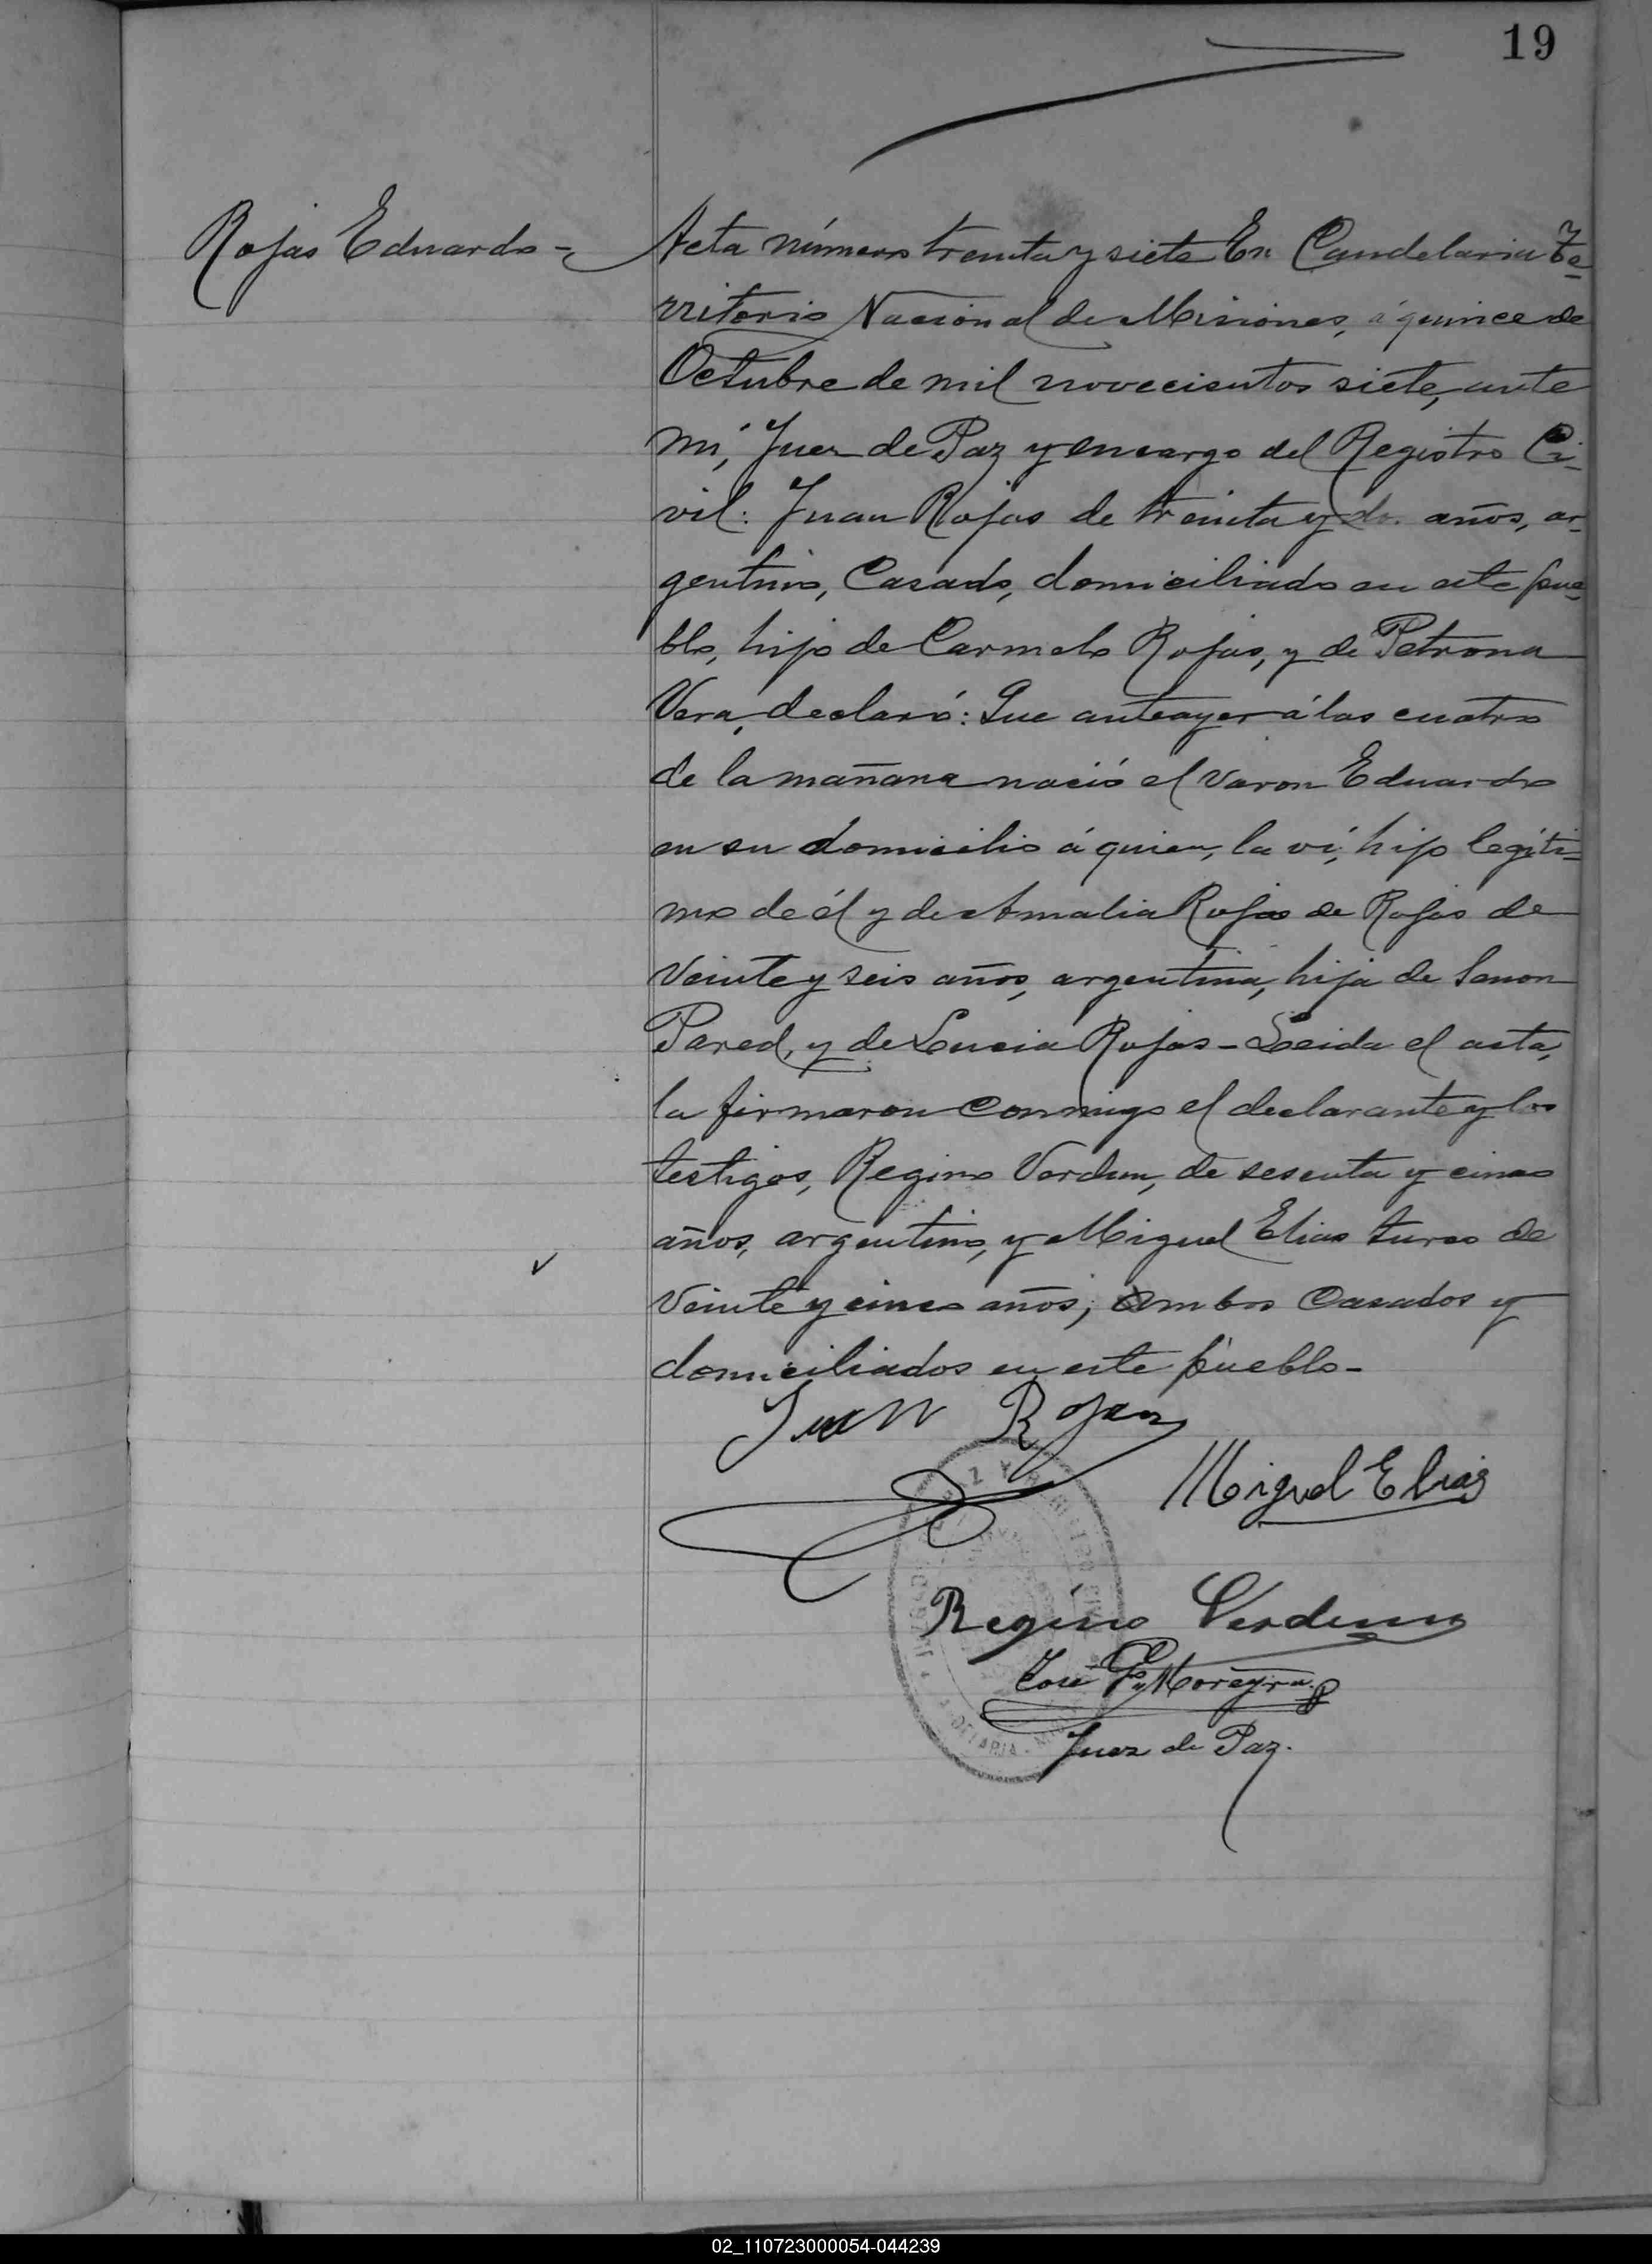 19
Rojas Eduardo -
Acta número treinta y siete En Candelaria Te-
rritorio Nacional de Misiones, á quince de
Octubre de mil novecientos siete, ante
mi, Juez de Paz y encargo del Registro Ci-
vil: Juan Rojas de treinta y dos años, ar-
gentino, Casado, domiciliado en este pue-
blo, hijo de Carmelo Rojas, y de Petrona
Vera, declaró: Que anteayer á las cuatro
de la mañana nació el varon Eduardo
en su domicilio á quien, la vi, hijo legiti-
mo de él y de Amalia Rojas de Rojas de
veinte y seis años, argentina, hija de
Pared, y de Lucia Rojas - Leida el acta,
la firmaron conmigo el declarante y los
testigos, Regino Verdun, de sesenta y cinco
años, argentino, y Miguel Elias turco de
veinte y cinco años; ambos casados y
domiciliados en este pueblo -
Juan Rojas
Miguel Elias
Regino Verdun
José Moreyra
Juez de Paz.
02_110723000054-044239